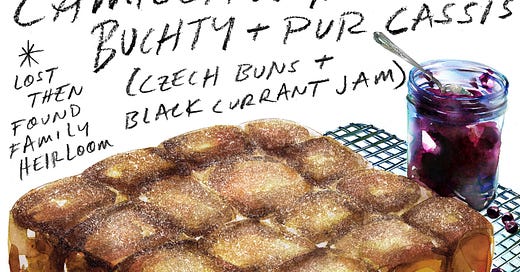 BUCHTY + PUR CASSIS
(CZECH BUNS +
BLACK CURRANT JAM)
* LOST
THEN
FOUND
FAMILY
HEIRLOOM